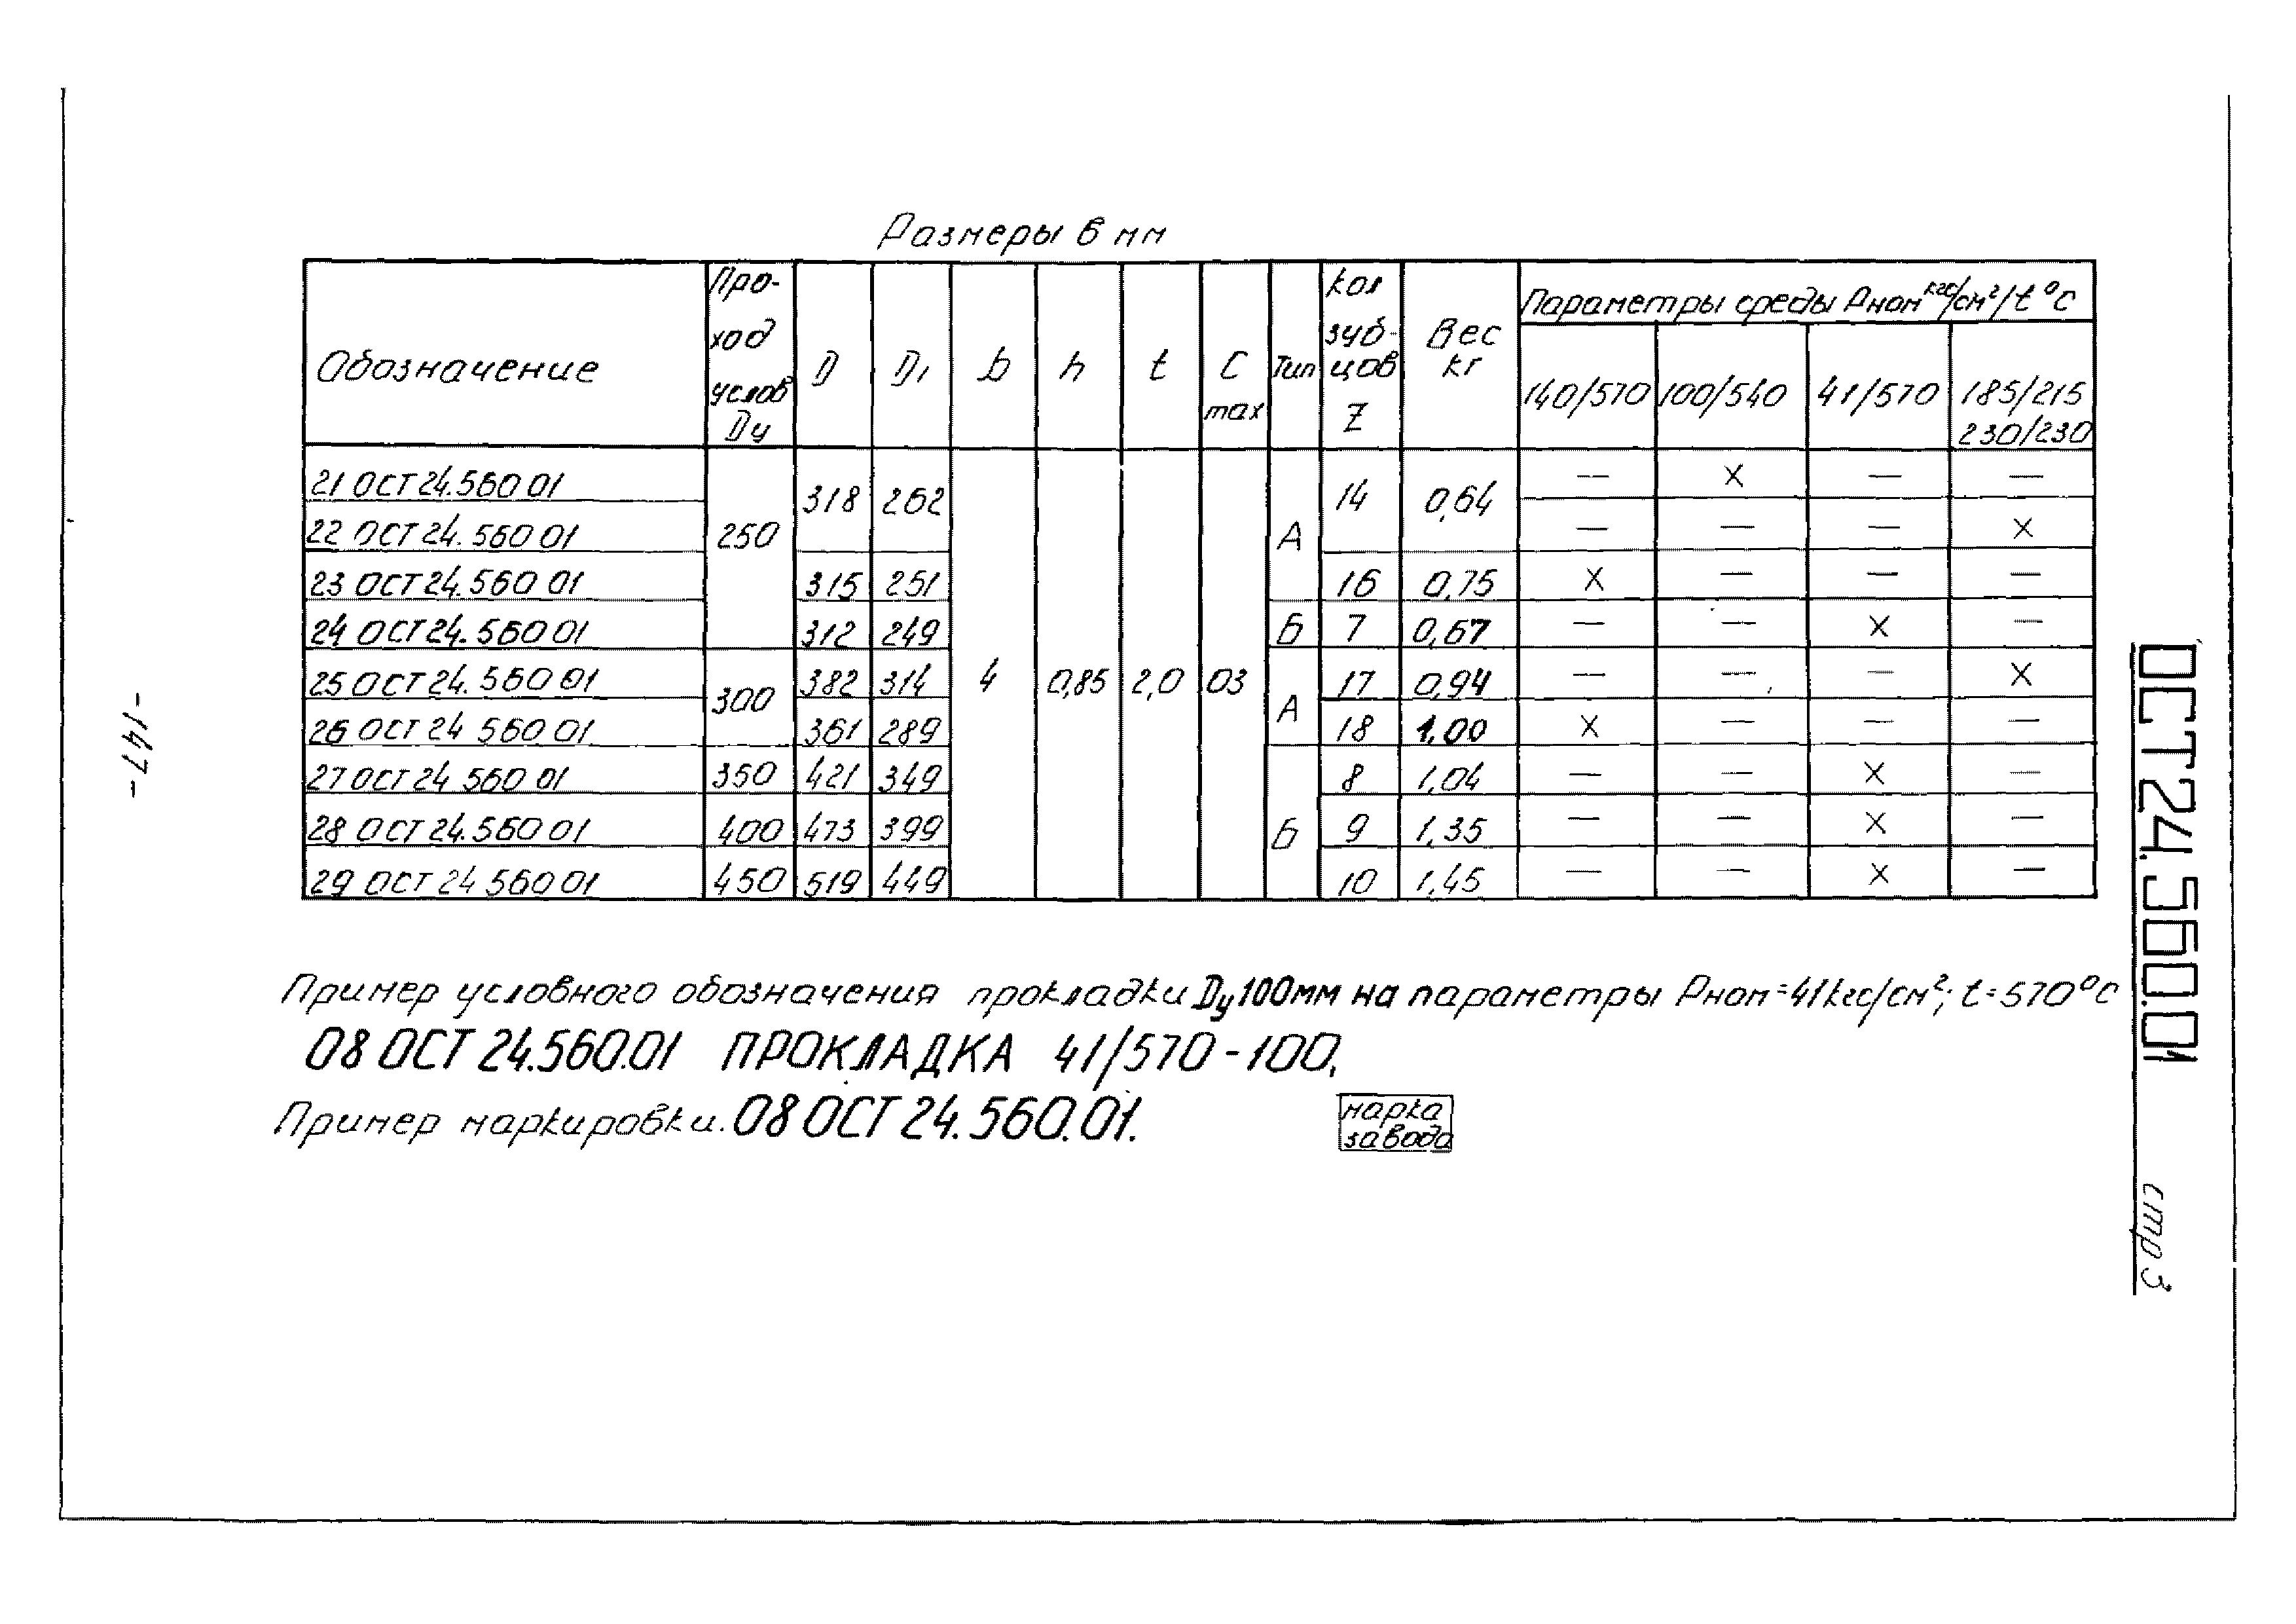 Размеры в мм
Обозначение Про- ход услов Dу D D1 b h t C max Тип Кол зуб- цов Z Вес кг Параметры среды Рном кгс/см²/t°C
140/570 100/540 41/570 185/215 230/230
21 ОСТ 24.560 01 250 318 262 4 0,85 2,0 03 А 14 0,64 — × — —
22 ОСТ 24.560 01 — — — ×
23 ОСТ 24.560 01 315 251 16 0,75 × — — —
24 ОСТ 24.560 01 312 249 Б 7 0,67 — — × —
25 ОСТ 24.560 01 300 382 314 А 17 0,94 — — — ×
26 ОСТ 24 560 01 361 289 18 1,00 × — — —
27 ОСТ 24.560 01 350 421 349 Б 8 1,04 — — × —
28 ОСТ 24.560 01 400 473 399 9 1,35 — — × —
29 ОСТ 24 560 01 450 519 449 10 1,45 — — × —
Пример условного обозначения прокладки Dу100мм на параметры Рном=41кгс/см²; t=570°С
08 ОСТ 24.560.01 ПРОКЛАДКА 41/570-100.
Пример маркировки. 08 ОСТ 24.560.01.
марка
завода
ОСТ 24.560.01 стр 3
-147-